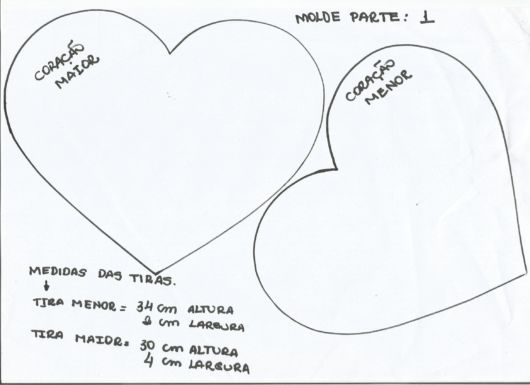 MOLDE PARTE: 1
CORAÇÃO
MAIOR
CORAÇÃO
MENOR
MEDIDAS DAS TIRAS.
TIRA MENOR = 34 cm ALTURA
cm LARGURA
TIRA MAIOR = 30 cm ALTURA
4 cm LARGURA